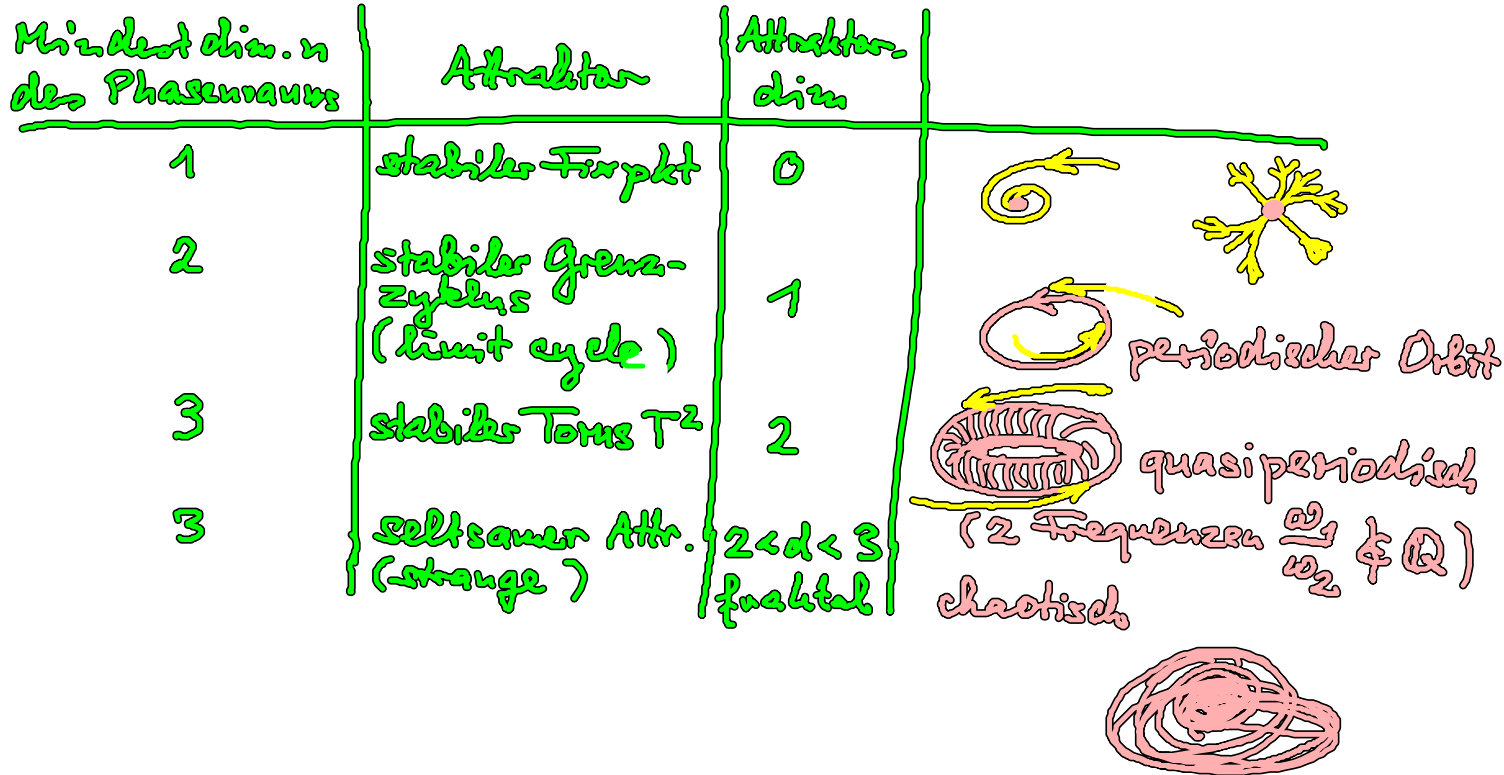 Mindestdim. n
des Phasenraums
Attraktor
Attraktor-
dim
1
stabiler Fixpkt
0
2
stabiler Grenz-
zyklus
(limit cycle)
1
periodischer Orbit
3
stabiler Torus T²
2
quasiperiodisch
(2 Frequenzen ω₁/ω₂ ∉ Q)
3
seltsamer Attr.
(strange)
2<d<3
fraktal
chaotisch